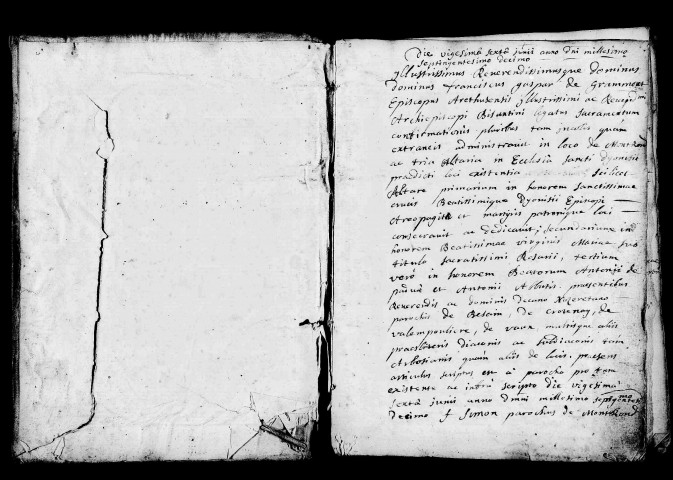 Die vigesimâ sextâ junii anno dni millesimo
septingentesimo decimo
Illustrissimus Reverendissimusque dominus
dominus franciscus gaspar de Grammont
Episcopus Arethusensis illustrissimi ac Revdissimi
Archiepiscopi Bisuntini legatus sacramentum
confirmationis pluribus tam incolis quam
extraneis administravit in loco de Montrond
ac tria Altaria in Ecclesia sancti dyonisii
praedicti loci existentia scilicet
Altare primarium in honorem sanctissimae
crucis Beatissimique dyonisii Episcopi
Areopagitae et martyris patronique loci
consecravit ac dedicavit; secundarium in
honorem Beatissimae virginis Mariae sub
titulo sacratissimi Rosarii, tertium
verò in honorem Beatorum Antonii de
paduâ et Antonii Abbatis. praesentibus
Reverendis ac dominis decano
parochis de Besain, de crotenay, de
valempouliere, de vaux, multisque aliis
praesbiteris diaconis ac subdiaconis tam
quàm aliis de locis. praesens
articulus scriptus est à parocho pro tem
existente ac infrà scripto die vigesimâ
sextâ junii anno dmni millesimo septingentesimo
decimo f simon parochus de Montrond